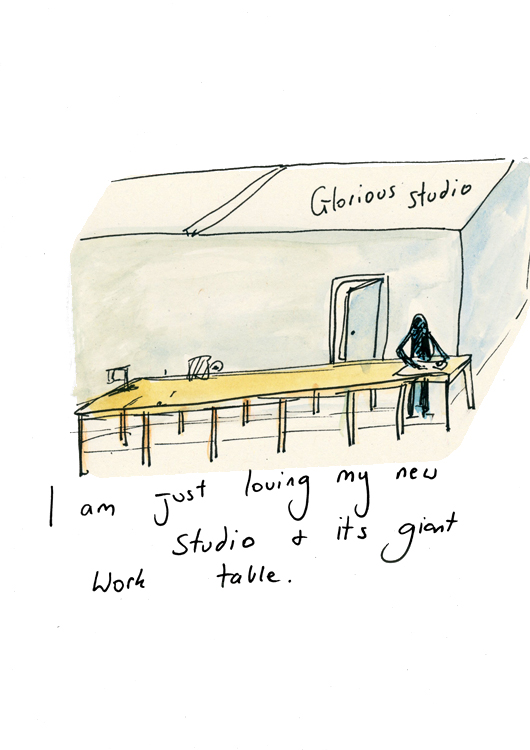 Glorious studio
I am just loving my new
studio & its giant
work table.